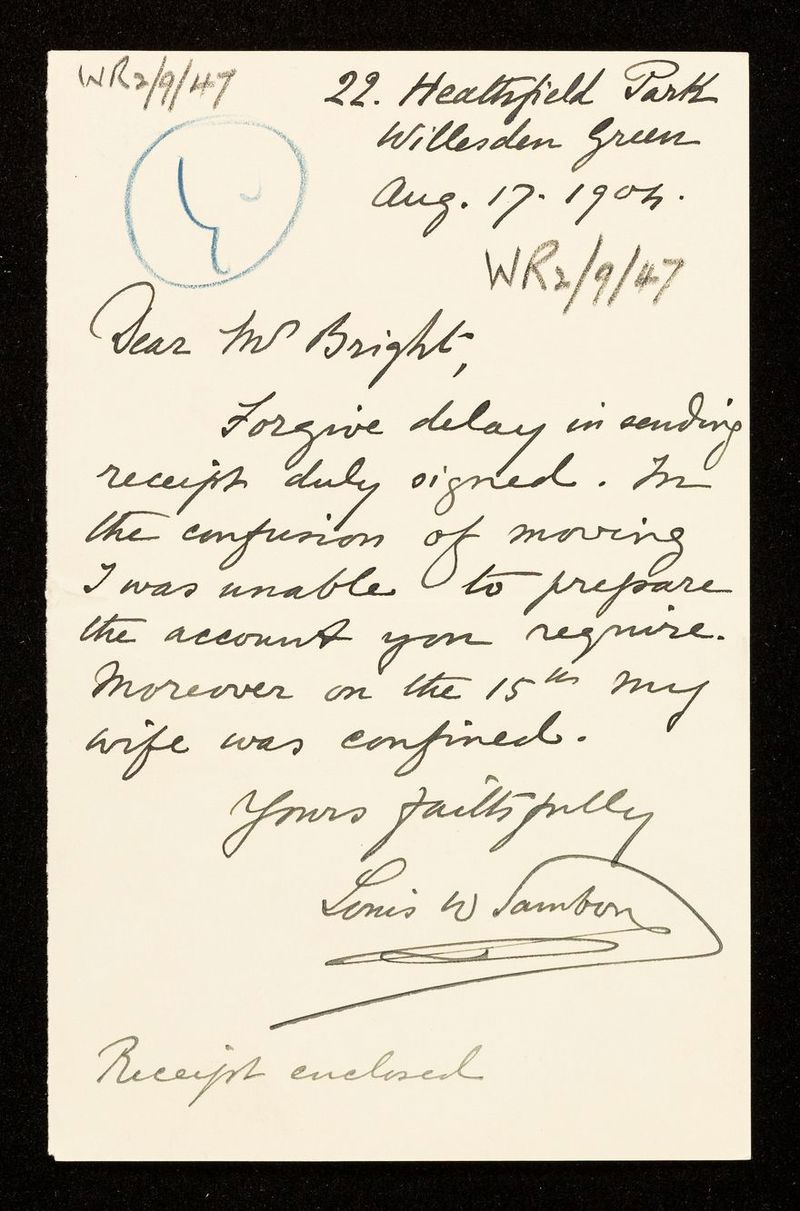 WR2/9/47
22. Heathfield Park
Willesden Green
Aug. 17. 1904.
WR2/9/47
Dear Mr Bright,
Forgive delay in sending
receipt duly signed. In
the confusion of moving
I was unable to prepare
the account you require.
Moreover on the 15th my
wife was confined.
Yours faithfully
Louis W Sambon
Receipt enclosed